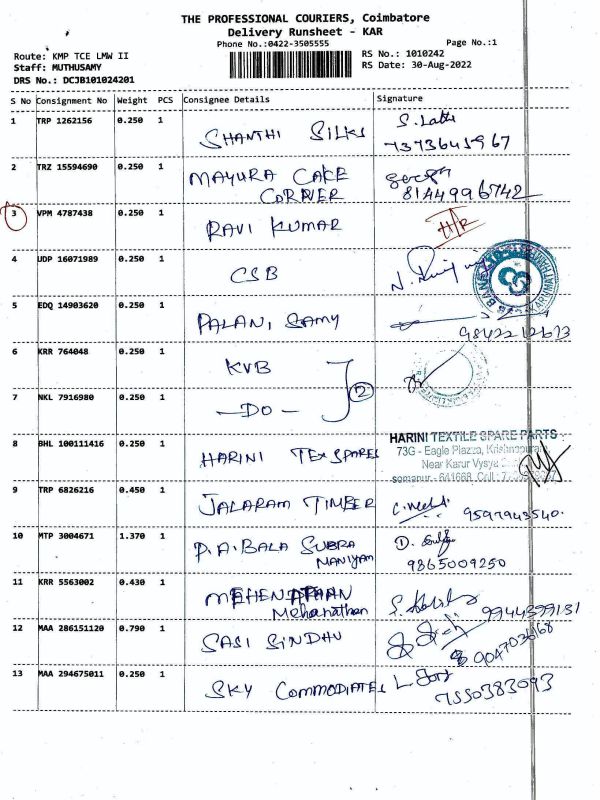 THE PROFESSIONAL COURIERS, Coimbatore
Delivery Runsheet - KAR
Phone No.:0422-3505555
Page No.:1
Route: KMP TCE LMW II
RS No.: 1010242
Staff: MUTHUSAMY
RS Date: 30-Aug-2022
DRS No.: DCJB101024201
S No Consignment No Weight PCS Consignee Details Signature
1 TRP 1262156 0.250 1 SHANTHI SILKS S. Latha
7373645967
2 TRZ 15594690 0.250 1 MAYURA CAKE
CORNER 8144996742
3 VPM 4787438 0.250 1 RAVI KUMAR
4 UDP 16071989 0.250 1 CSB
5 EDQ 14903620 0.250 1 PALANI SAMY
9842212673
6 KRR 764048 0.250 1 KVB
2
7 NKL 7916980 0.250 1 - DO -
8 BHL 100111416 0.250 1 HARINI TEX SPARES
HARINI TEXTILE SPARE PARTS
73G - Eagle Plazza, Krishnapuram
Near Karur Vysya
somanur - 641668. Cell :
9 TRP 6826216 0.450 1 JALARAM TIMBER
9597943540
10 MTP 3004671 1.370 1 P.A. BALA SUBRA
MANIYAM D.
9865009250
11 KRR 5563002 0.430 1 MEHENATHAN
Mehanathan 9944399131
12 MAA 286151120 0.790 1 SASI SINDHU
9047036168
13 MAA 294675011 0.250 1 SKY COMMODIATES
7550383093